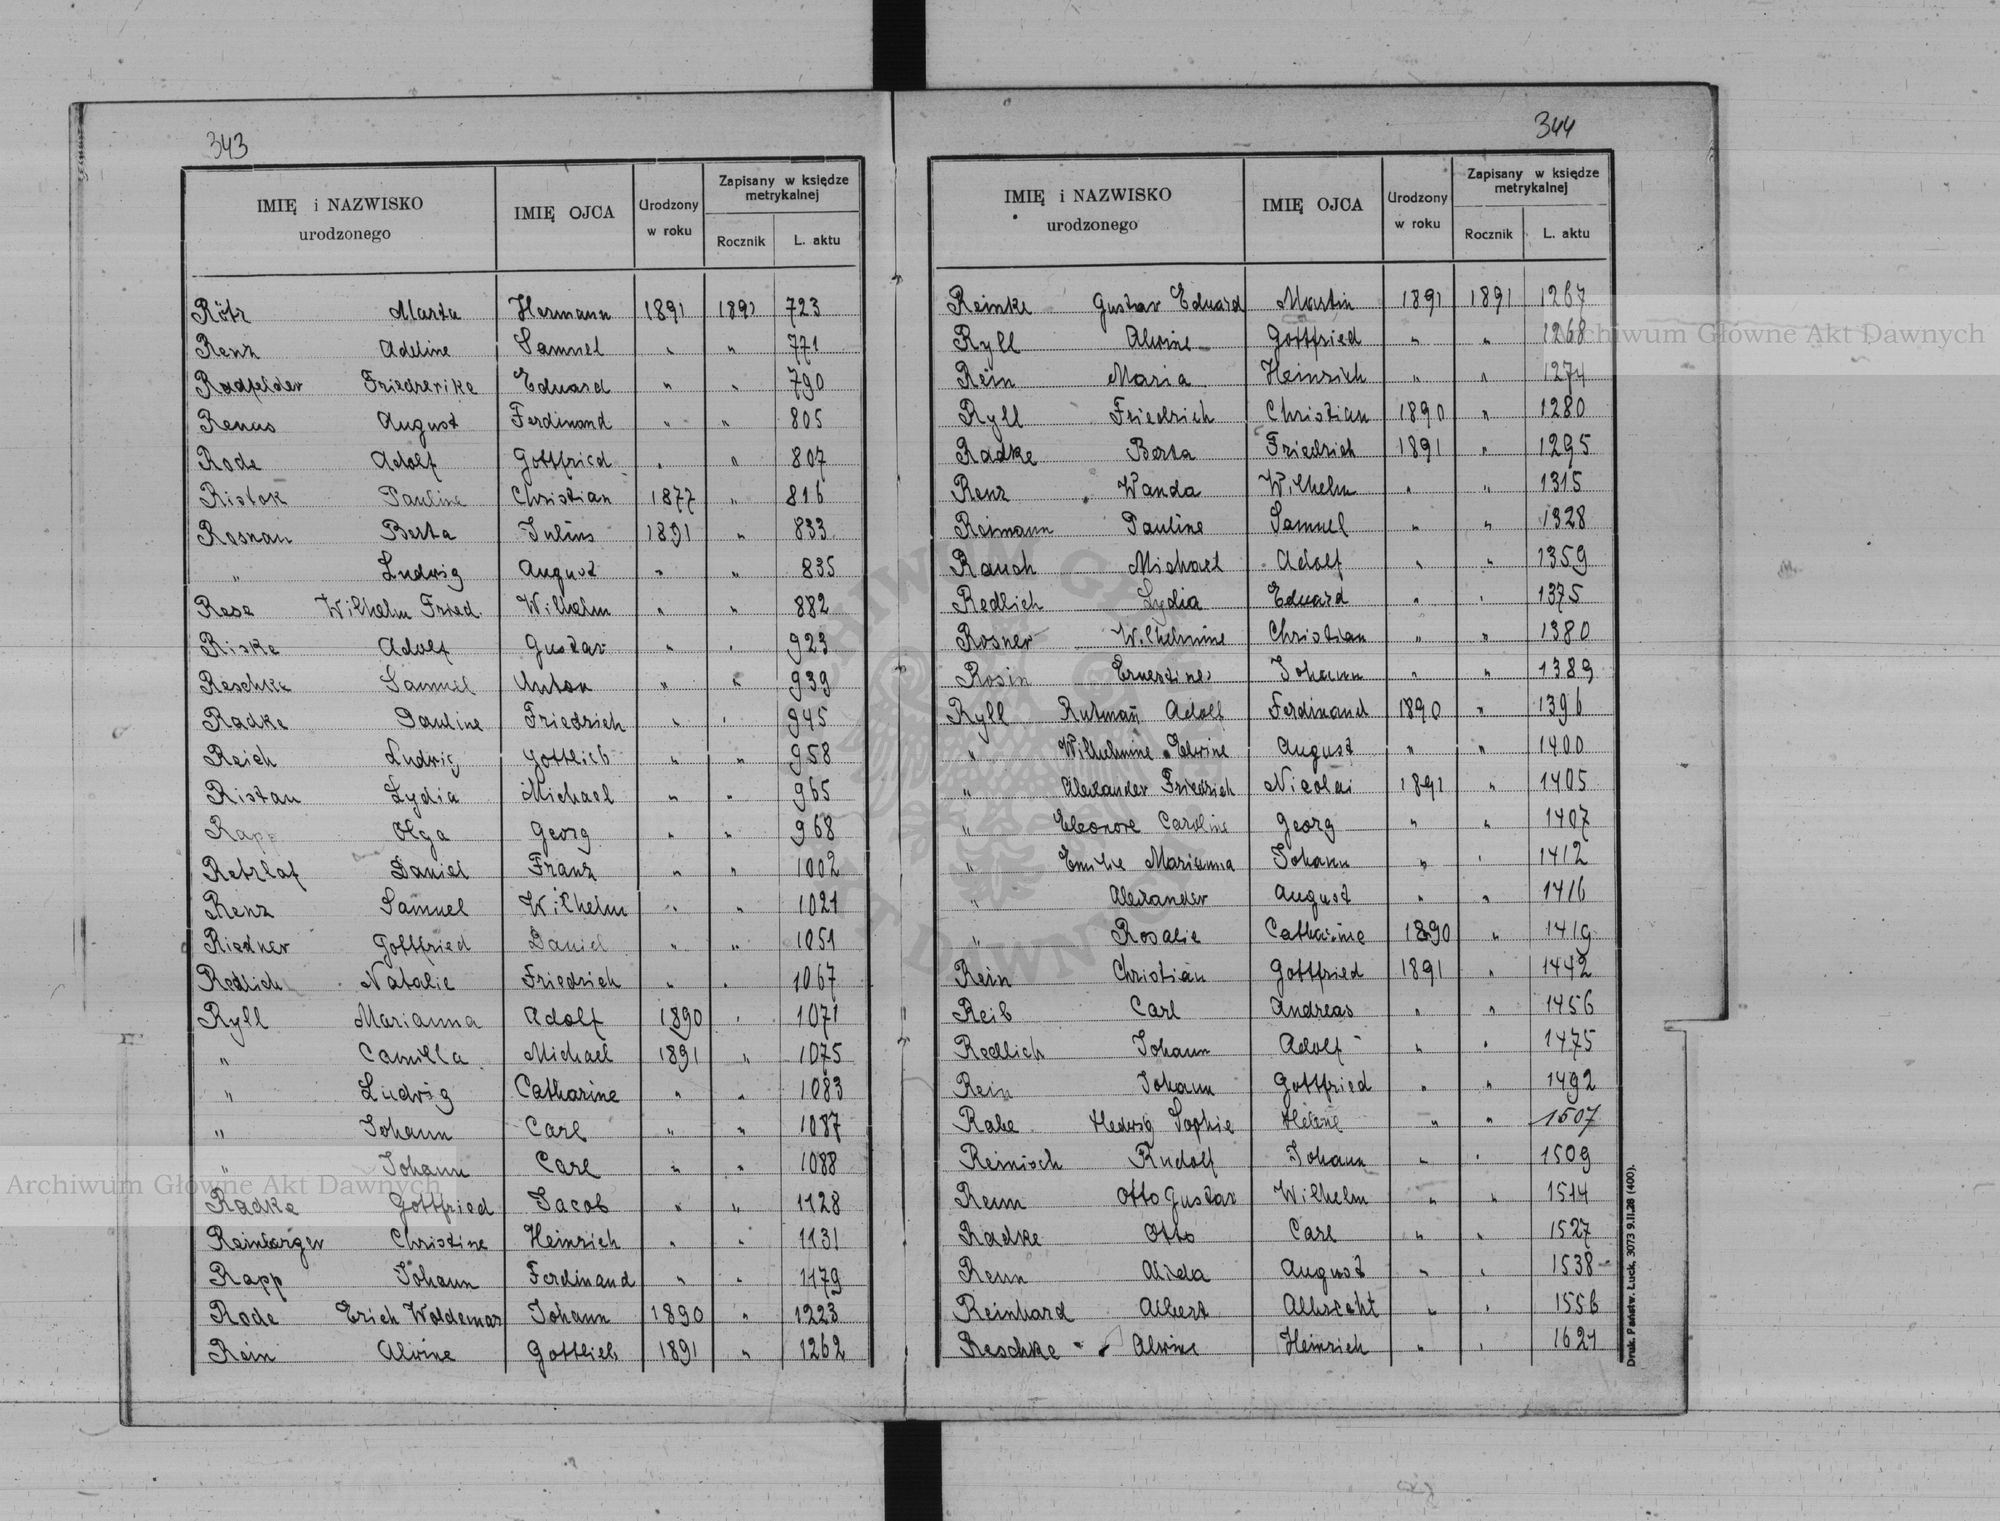 343
IMIĘ i NAZWISKO urodzonego IMIĘ OJCA Urodzony w roku Zapisany w księdze metrykalnej Rocznik L. aktu
Rötz Marta Hermann 1891 1891 723
Renz Adeline Samuel " " 771
Radfelder Friedrerike Eduard " " 790
Renus August Ferdinand " " 805
Rode Adolf Gottfried " " 807
Ristok Pauline Christian 1877 " 816
Rosnau Berta Julius 1891 " 833
" Ludwig August " " 835
Rese Wilhelm Fried. Wilhelm " " 882
Riske Adolf Gustav " " 923
Reschke Samuel Anton " " 939
Radke Pauline Friedrich " " 945
Reich Ludwig Gottlieb " " 958
Ristau Lydia Michael " " 965
Rapp Olga Georg " " 968
Retzlaf Daniel Franz " " 1002
Renz Samuel Wilhelm " " 1021
Riedner Gottfried Daniel " " 1051
Redlich Natalie Friedrich " " 1067
Ryll Marianna Adolf 1890 " 1071
" Camilla Michael 1891 " 1075
" Ludwig Catharine " " 1083
" Johann Carl " " 1087
" Johann Carl " " 1088
Radke Gottfried Jacob " " 1128
Reinberger Christine Heinrich " " 1131
Rapp Johann Ferdinand " " 1179
Rode Erich Woldemar Johann 1890 " 1223
Rein Alwine Gottlieb 1891 " 1262
344
IMIĘ i NAZWISKO urodzonego IMIĘ OJCA Urodzony w roku Zapisany w księdze metrykalnej Rocznik L. aktu
Reinke Gustav Eduard Martin 1891 1891 1267
Ryll Alwine Gottfried " " 1268
Rein Maria Heinrich " " 1274
Ryll Friedrich Christian 1890 " 1280
Radke Berta Friedrich 1891 " 1295
Renz Wanda Wilhelm " " 1315
Reimann Pauline Samuel " " 1328
Rauch Michael Adolf " " 1359
Redlich Lydia Eduard " " 1375
Rosner Wilhelmine Christian " " 1380
Rosin Ernestine Johann " " 1389
Ryll Adolf Ferdinand 1890 " 1396
" Wilhelmine Edwine August " " 1400
" Alexander Friedrich Nicolai 1891 " 1405
" Eleonore Caroline Georg " " 1407
" Emilie Marianna Johann " " 1412
" Alexander August " " 1416
" Rosalie Catharine 1890 " 1419
Rein Christian Gottfried 1891 " 1442
Reib Carl Andreas " " 1456
Redlich Johann Adolf " " 1475
Rein Johann Gottfried " " 1492
Rabe Hedwig Sophie Helene " " 1507
Reinisch Rudolf Johann " " 1509
Renn Otto Gustav Wilhelm " " 1514
Radke Otto Carl " " 1527
Renn Alida August " " 1538
Reinhard Albert Albrecht " " 1556
Reschke Alwine Heinrich " " 1621
Druk. Państw. Łuck, 3073 9.II.28 (400).
Archiwum Główne Akt Dawnych
Archiwum Główne Akt Dawnych